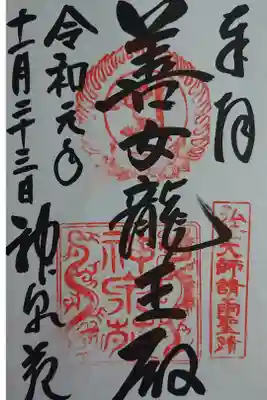 奉拝
弘法大師請雨聖跡
善女龍王殿
令和元年
十一月二十三日
神泉苑